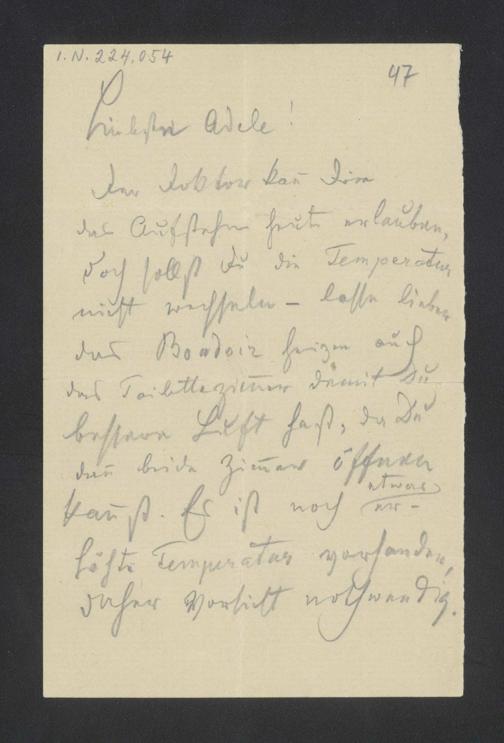 I.N. 224.054
47
Liebste Adele!
Der Doktor kan̄ Dir
das Aufstehen heute erlauben,
doch sollst Du die Temperatur
nicht wechseln – lasse lieber
das Boudoir heizen auch
das Toilettezim̄er damit Du
bessere Luft hast, da Du
dan̄ beide Zim̄er öffnen
kan̄st. Es ist noch etwas er-
höhte Temperatur vorhanden,
daher Vorsicht nothwendig.